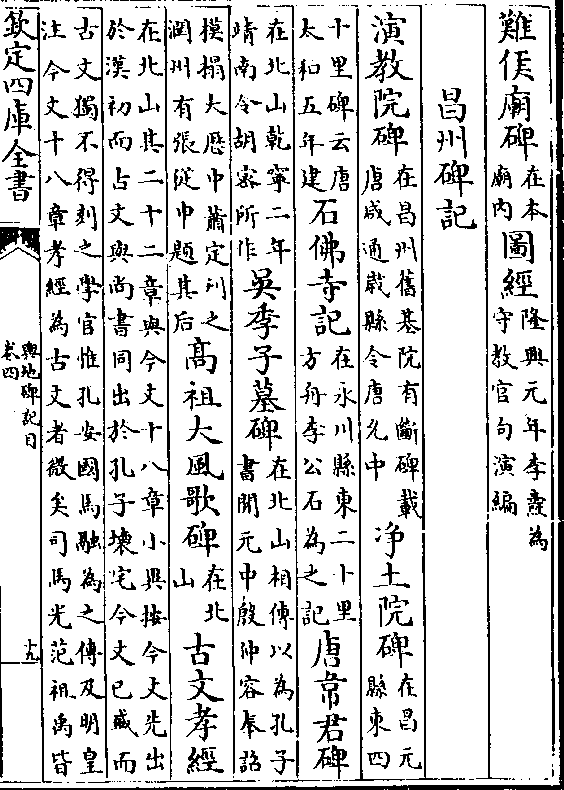 難侯廟碑在本廟内圖經隆興元年李燾為守教官句演編
昌州碑記
演教院碑在昌州舊基院有斷碑載唐咸通歲縣令唐允中淨土院碑在昌元縣東四
十里碑云唐太和五年建石佛寺記在永川縣東二十里方舟李公石為之記唐韋君碑
在北山乾寧二年靖南令胡密所作吳季子墓碑在北山相傳以為孔子書開元中殷仲容奉詔
模搨大歷中蕭定刋之潤州有張從申題其后高祖大風歌碑在北山古文孝經
在北山其二十二章與今文十八章小異按今文先出於漢初而古文與尚書同出於孔子壞宅今文已盛而
古文獨不得列之學官惟孔安國馬融為之傳及明皇注今文十八章孝經為古文者微矣司馬光范祖禹皆
欽定四庫全書
輿地碑記目
卷四
十九